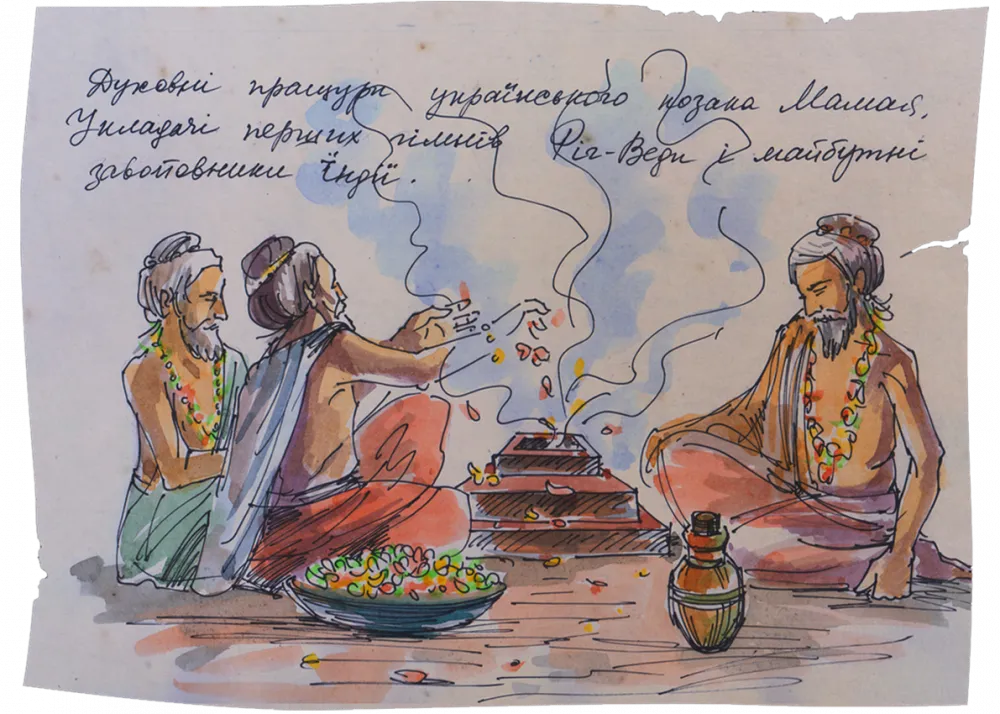 Духовні пращури українського козака Мамая,
Укладачі перших гімнів Ріг-Веди і майбутні
завойовники Їндії.